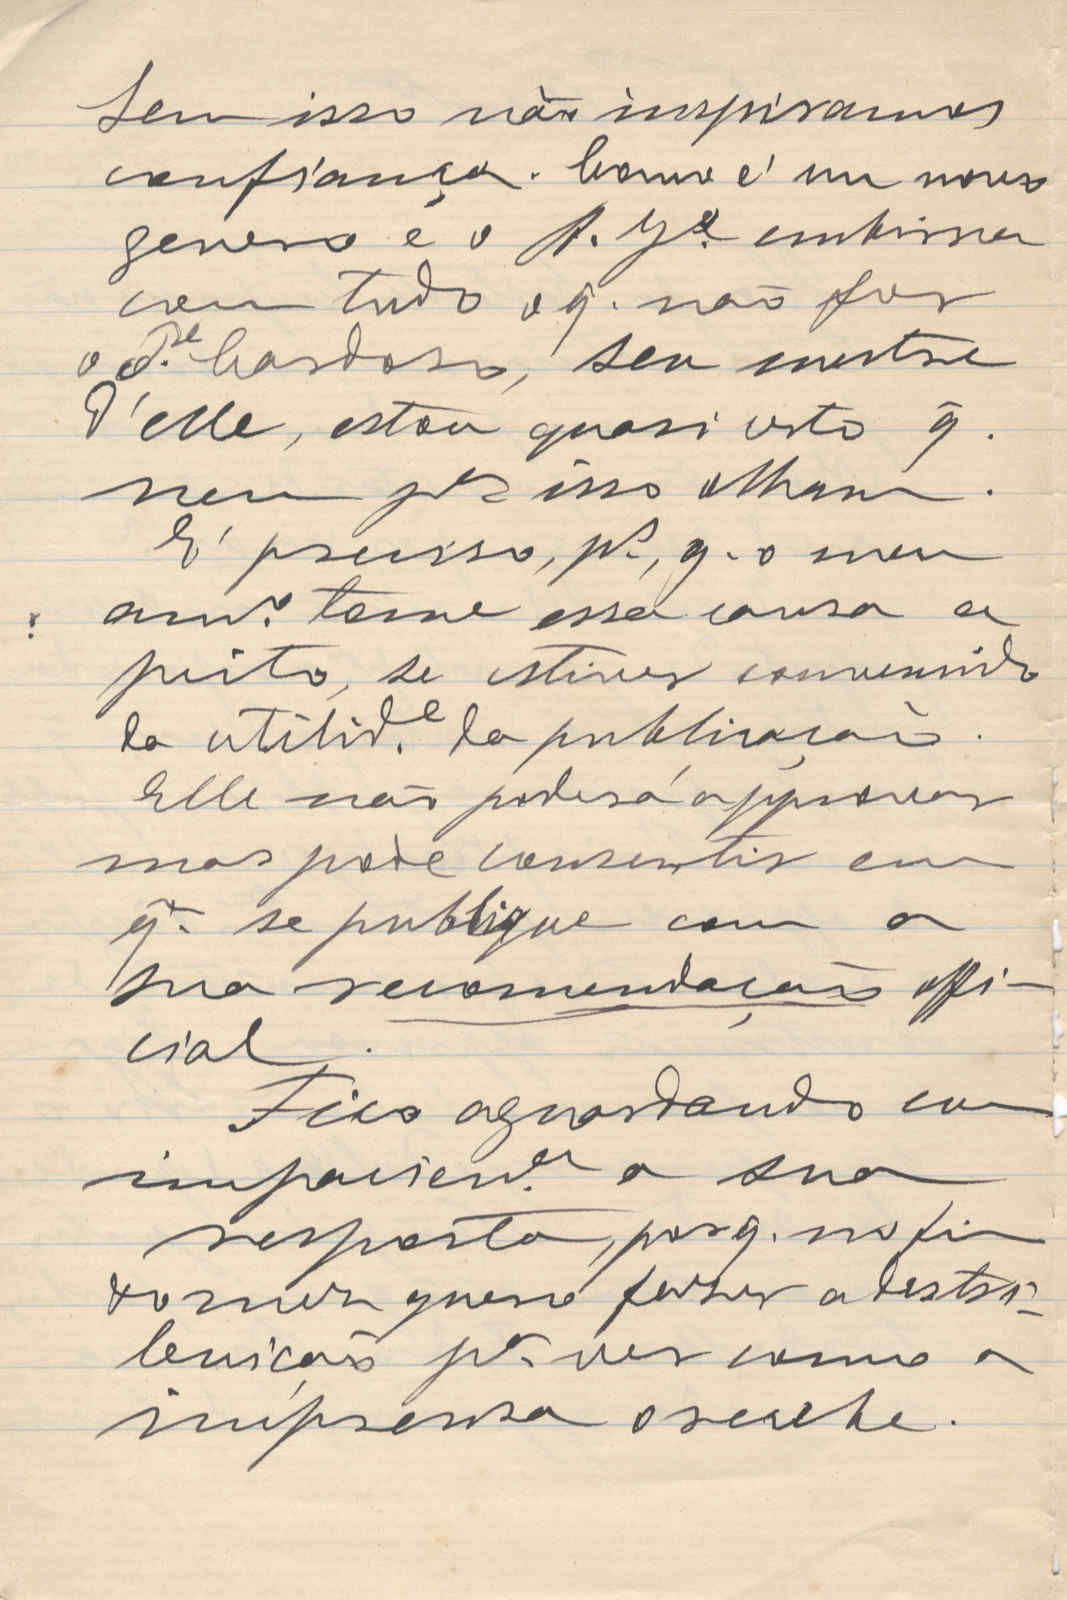 Sem isso não inspiramos
confiança. Como é um novo
genero e o P. Yº. embirra
com tudo o q. não for
o d.re Cardoso, seu mestre
d'elle, estou quasi certo q.
nem pª isso olham.
E' preciso, ps., q. o meu
amº. tome essa causa a
peito, se estiver convencido
da utilid.e da publicação.
Elle não poderá approvar
mas pode consentir em
q. se publique com a
sua recomendação offi-
cial.
Fico aguardando com
impacien.a a sua
resposta, porq. no fim
do mez quero fazer a destri-
buição pª. ver como a
imprensa o recebe.